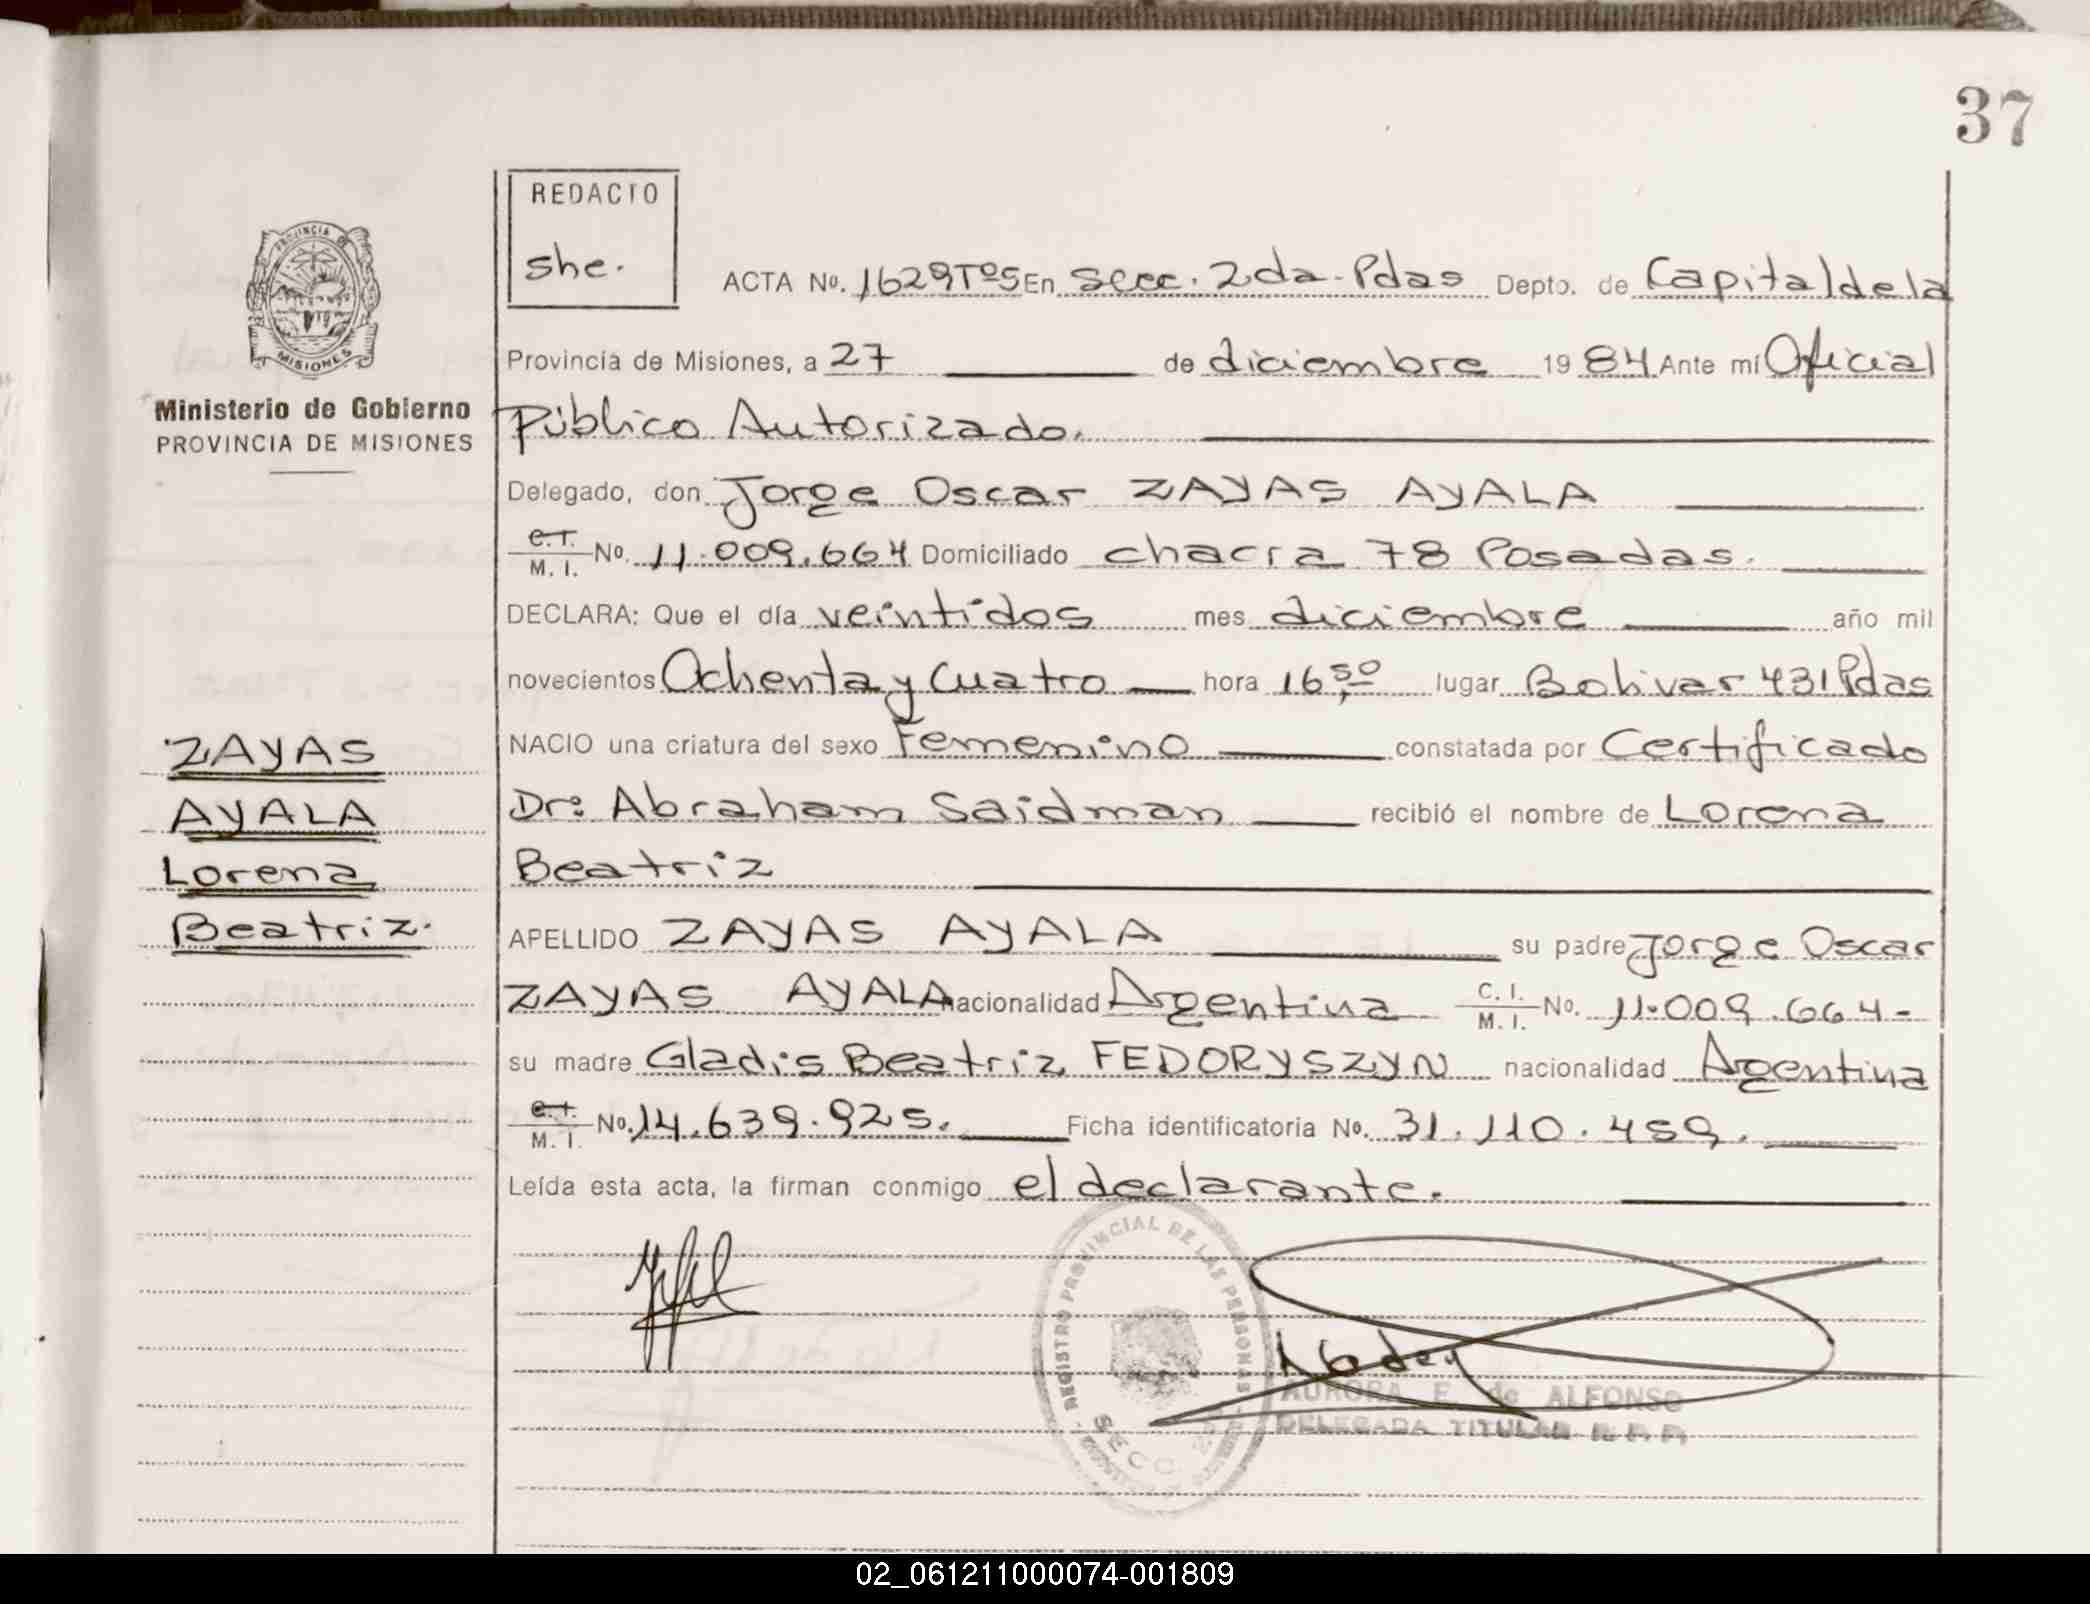 37
REDACTO
she.
ACTA No. 1629 Tº5 En Secc. 2da - Pdas Depto. de Capital de la
Provincia de Misiones, a 27 de diciembre 1984 Ante mí Oficial
Público Autorizado.
Delegado, don Jorge Oscar ZAYAS AYALA
C.I. M. I. No. 11.009.664 Domiciliado chacra 78 Posadas.
DECLARA: Que el día veintidos mes diciembre año mil
novecientos Ochenta y Cuatro hora 16,50 lugar Bolivar 431 Pdas
NACIO una criatura del sexo Femenino constatada por Certificado
Dr: Abraham Saidman recibió el nombre de Lorena
Beatriz
APELLIDO ZAYAS AYALA su padre Jorge Oscar
ZAYAS AYALA nacionalidad Argentina C. I. M. I. No. 11.009.664-
su madre Gladis Beatriz FEDORYSZYN nacionalidad Argentina
C.I. M. I. No. 14.639.925. Ficha identificatoria No. 31.110.459.
Leída esta acta, la firman conmigo el declarante.
PROVINCIA DE
MISIONES
Ministerio de Gobierno
PROVINCIA DE MISIONES
ZAYAS
AYALA
Lorena
Beatriz.
REGISTRO PROVINCIAL DE LAS PERSONAS
SECC
AURORA F. de ALFONSO
DELEGADA TITULAR R. P. P.
02_061211000074-001809